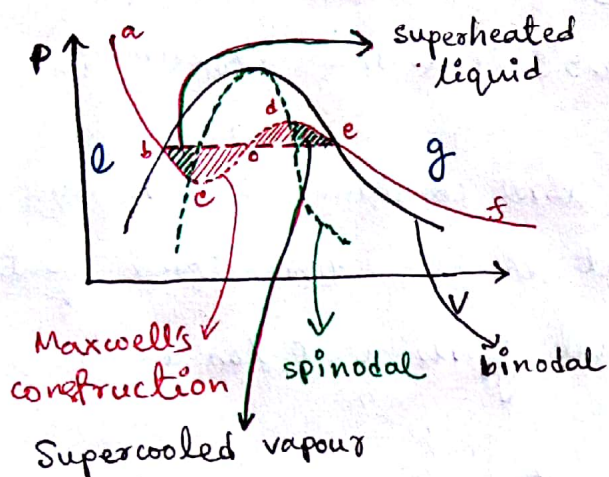 superheated
liquid
P
a
b
c
d
e
o
l
g
f
V
Maxwell's
construction
spinodal
binodal
Supercooled vapour